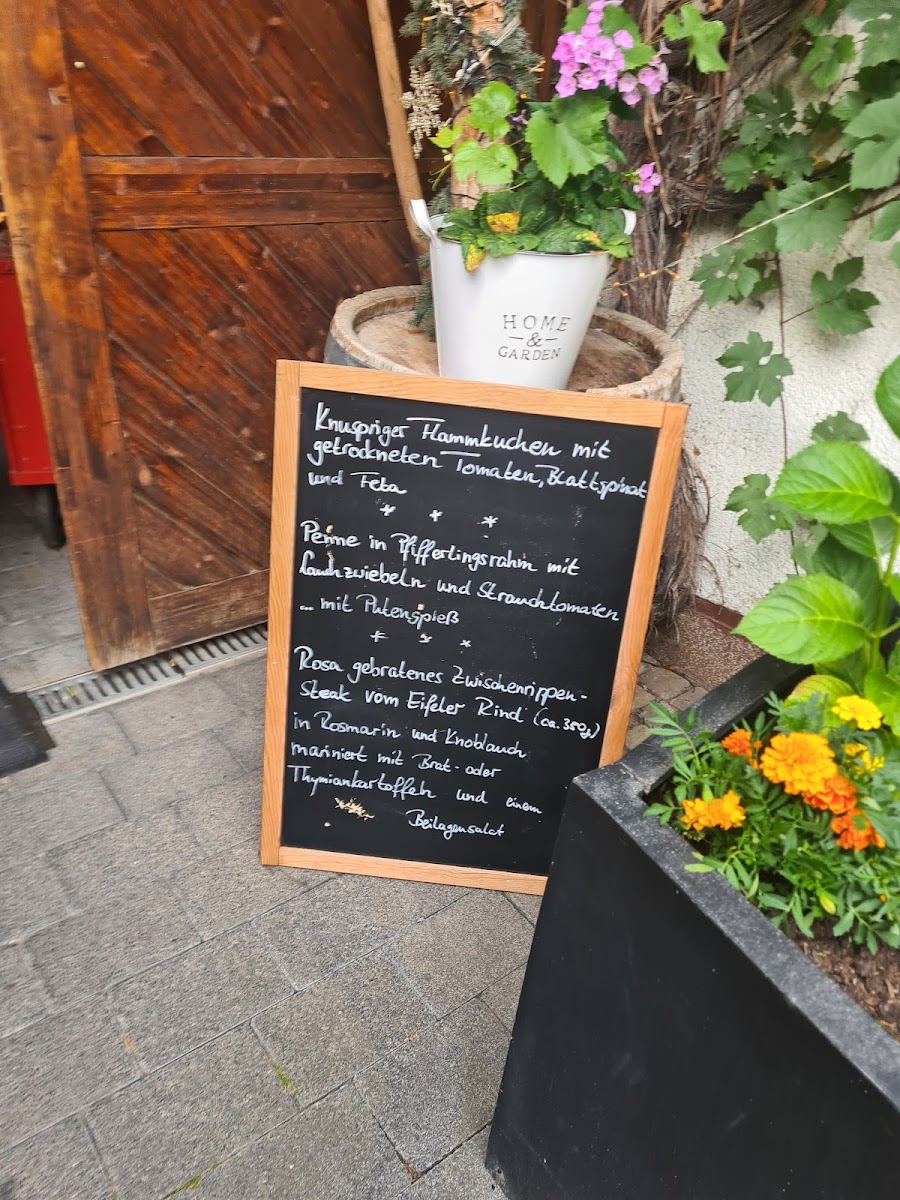 HOME
&
GARDEN
Knuspriger Flammkuchen mit
getrockneten Tomaten, Blattspinat
und Feta
* * *
Penne in Pfifferlingsrahm mit
Lauchzwiebeln und Strauchtomaten
... mit Putenspieß
* * *
Rosa gebratenes Zwischenrippen-
steak vom Eifeler Rind (ca. 350g)
in Rosmarin und Knoblauch
mariniert mit Brat- oder
Thymiankartoffeln und einem
Beilagensalat